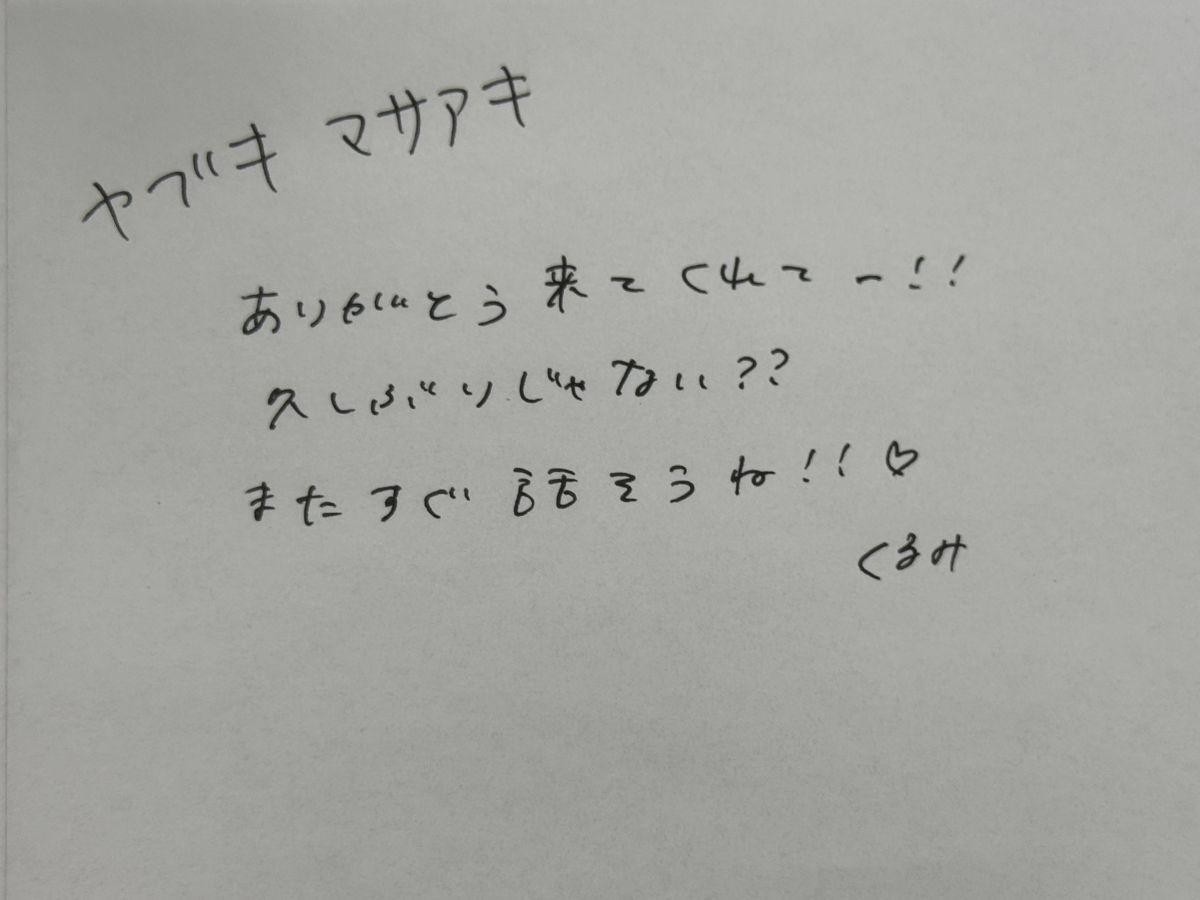 ヤブキ マサアキ
ありがとう来てくれてー!!
久しぶりじゃない??
またすぐ話そうね!!♡
くるみ